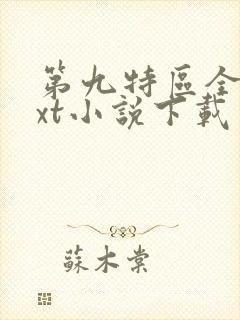 第九特區全
xt小說下載
蘇木棠